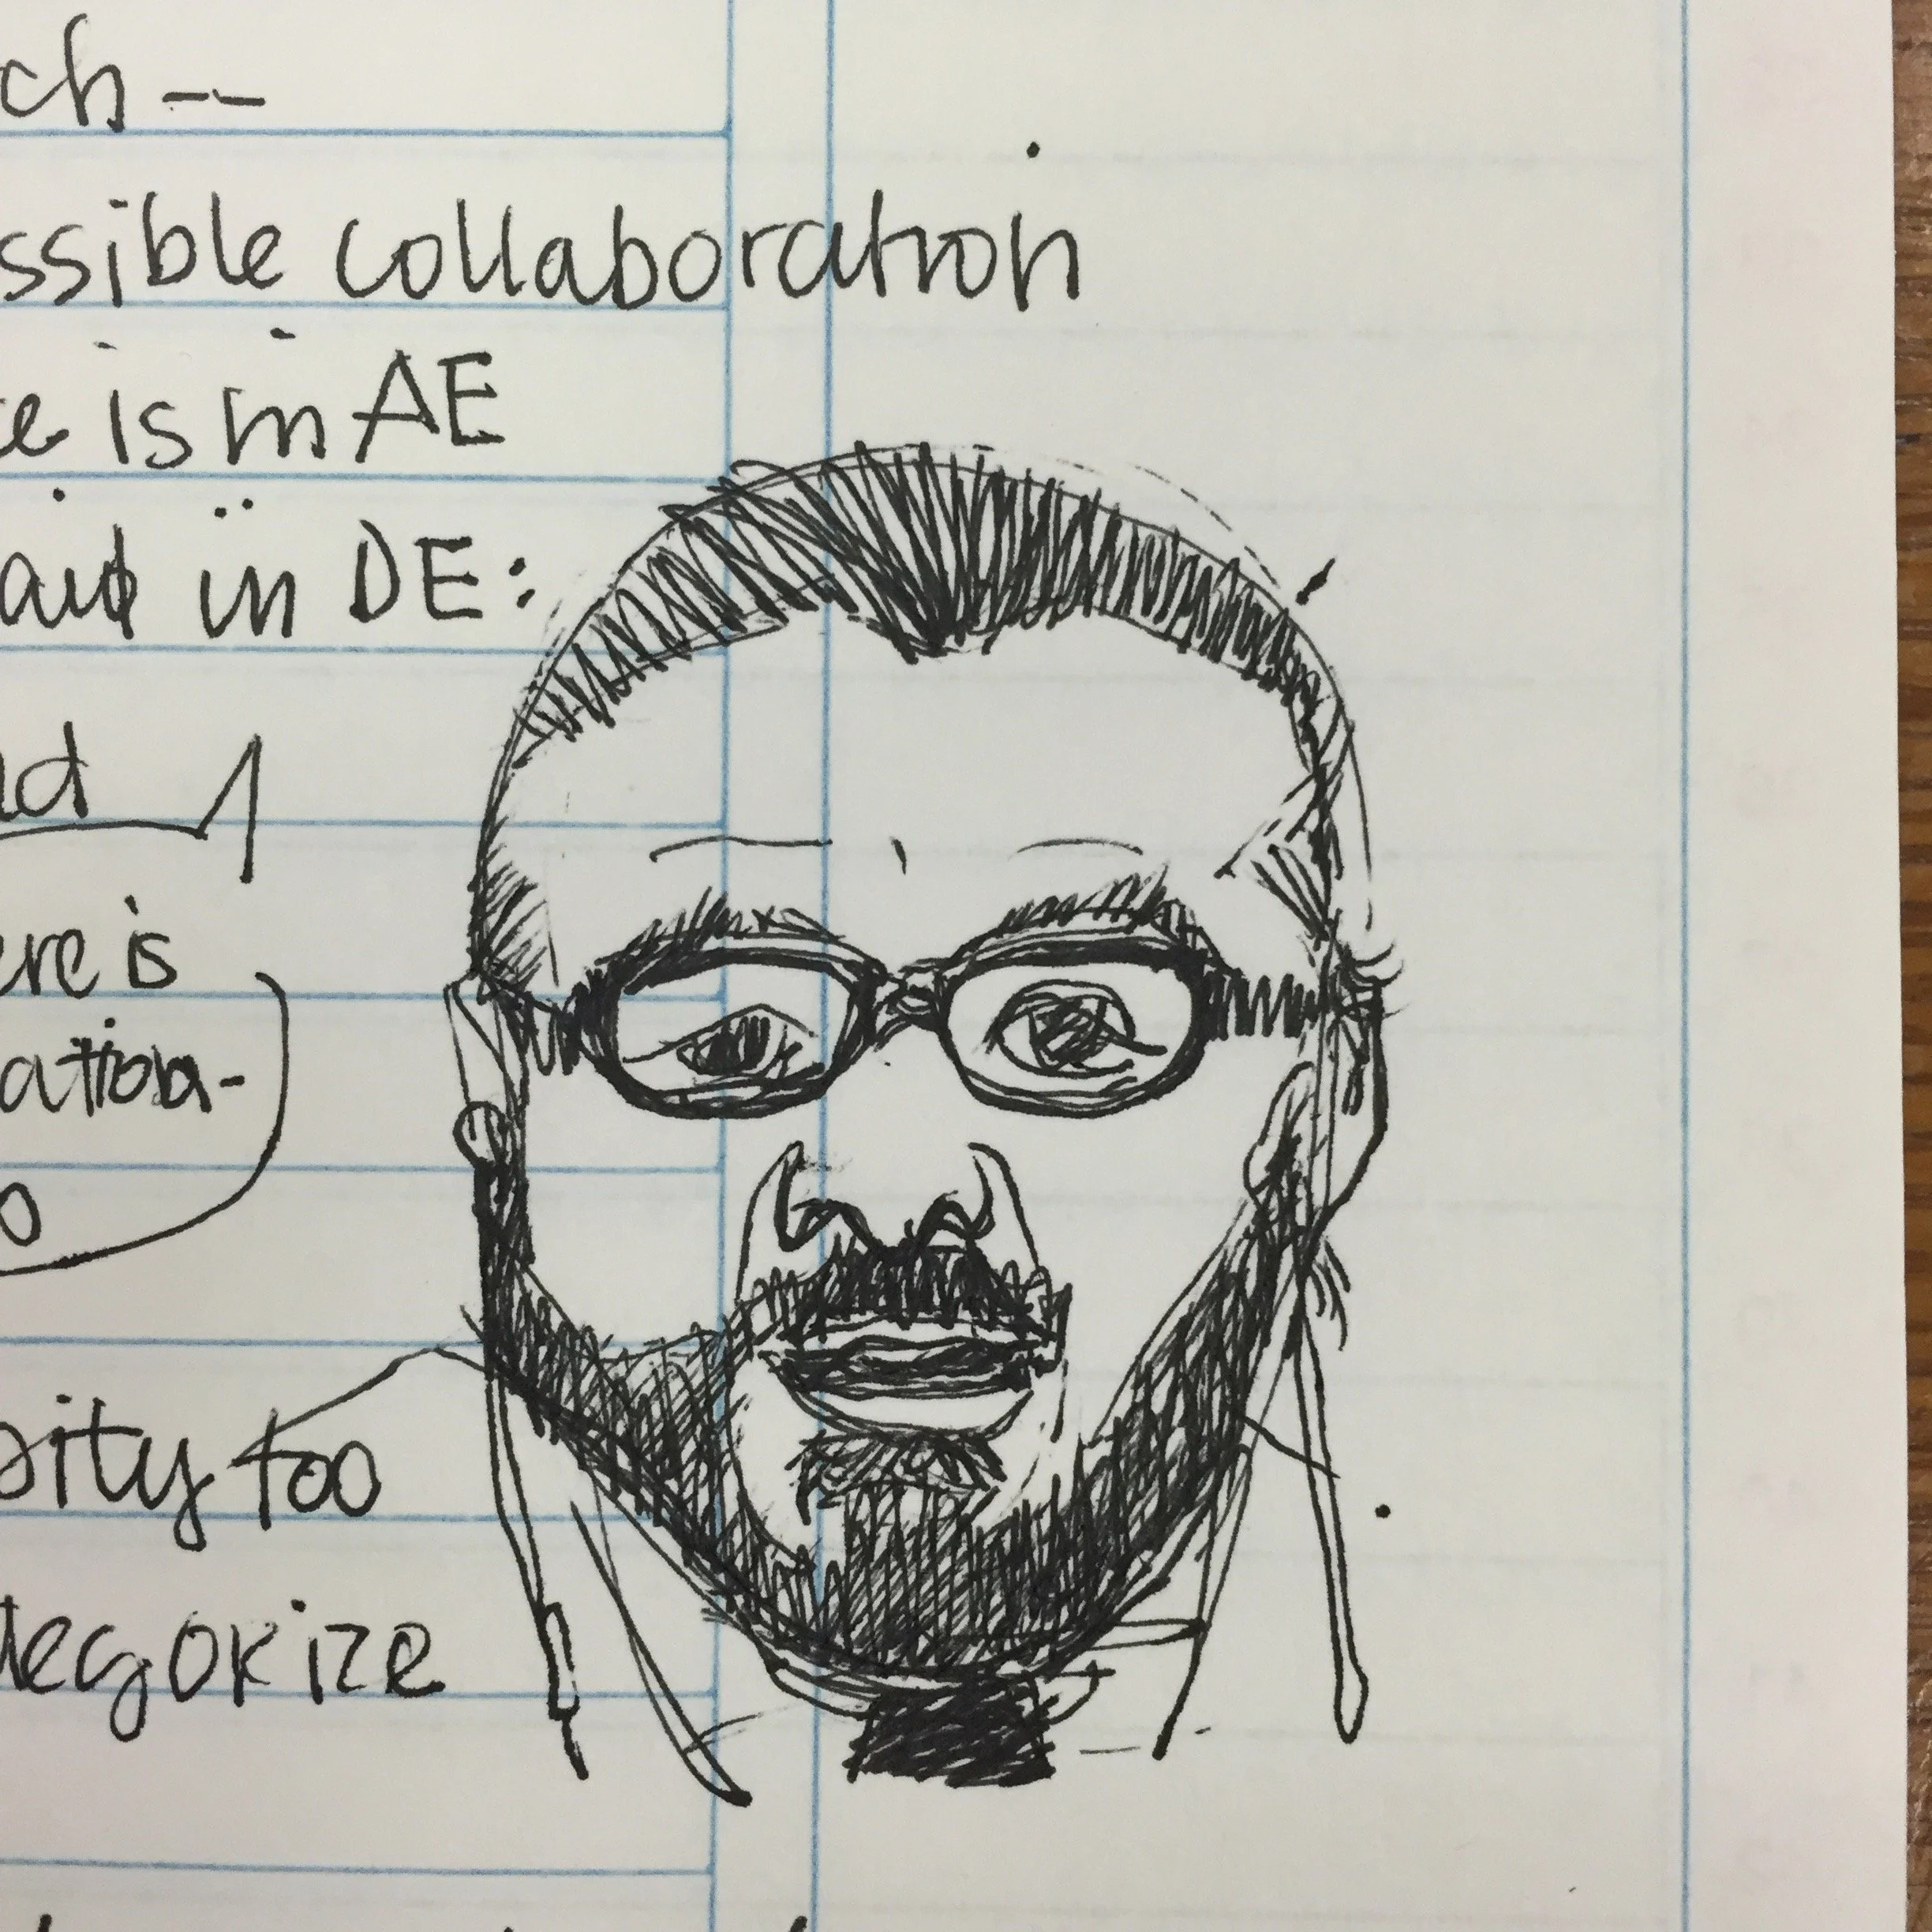 ch--
ssible collaboration
e is in AE
in DE:
nd
ere is
ation-
o
ority too
tegorize